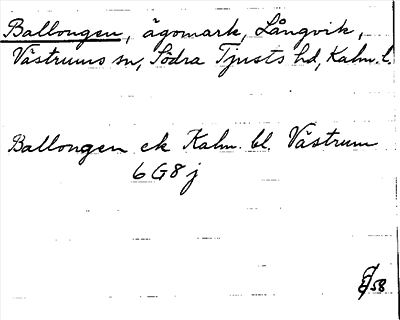 Ballongen, ägomark, Långvik,
Västrums sn, Södra Tjusts hd, Kalm. l.
Ballongen ek Kalm. bl. Västrum
6G8j
58